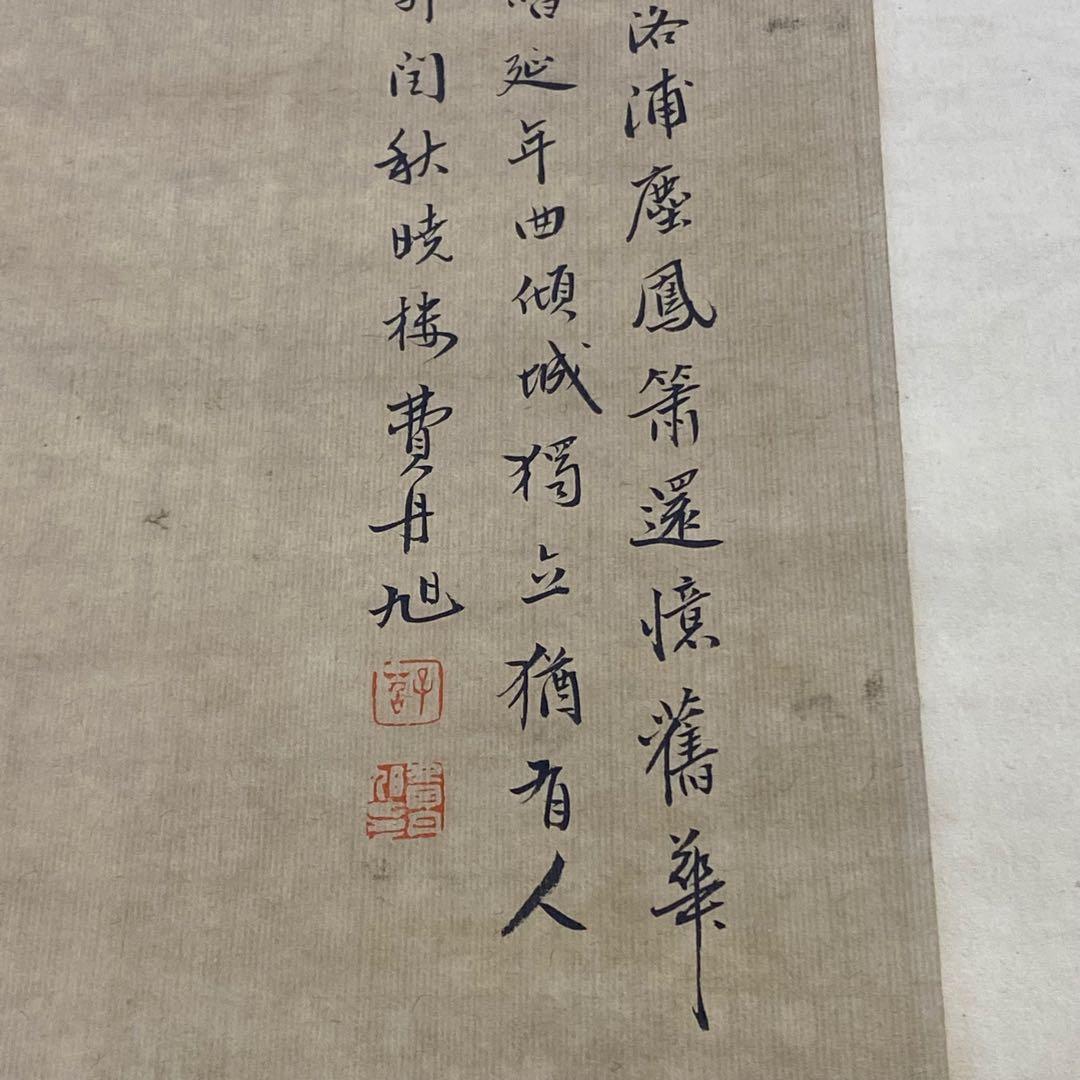 洛浦塵鳳簫還憶舊華
唱延年曲傾城獨立猶有人
卯閏秋曉樓費丹旭
子苕